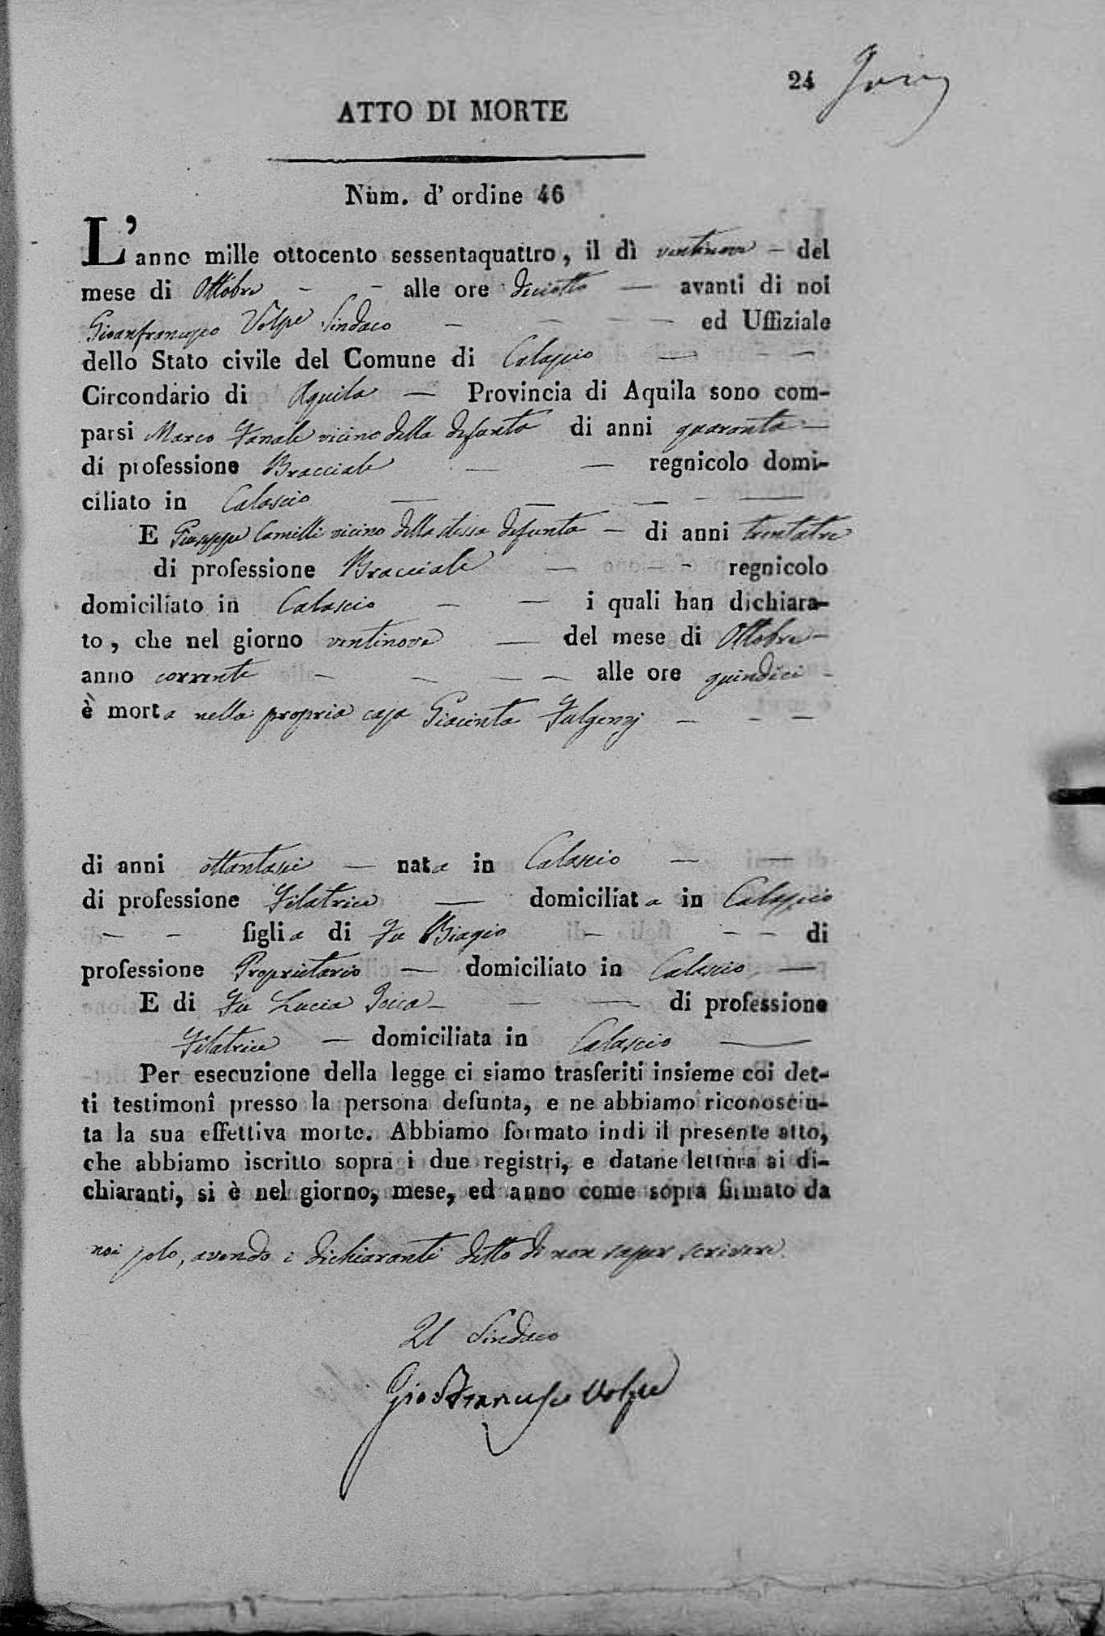 24
ATTO DI MORTE
Num. d' ordine 46
L'anno mille ottocento sessentaquattro, il dì ventinove - del
mese di Ottobre - - alle ore diciotto — avanti di noi
Gioanfrancesco Volpe Sindaco - - - — ed Uffiziale
dello Stato civile del Comune di Calascio — - -
Circondario di Aquila — Provincia di Aquila sono com-
parsi Marco Fanale vicino della defunta di anni quaranta —
di professione Bracciale — — regnicolo domi-
ciliato in Calascio — — — - —
E Giuseppe Camilli vicino della stessa defunta - di anni trentatre
di professione Bracciale - - - regnicolo
domiciliato in Calascio - — i quali han dichiara-
to, che nel giorno ventinove — del mese di Ottobre -
anno corrente - - — — alle ore quindici -
è morta nella propria casa Giacinta Fulgenzj - - -
di anni ottantasei — nata in Calascio — —
di professione Filatrice — domiciliata in Calascio
- - figlia di fu Biagio - - - di
professione Proprietario — domiciliato in Calascio —
E di fu Lucia - - — di professione
Filatrice — domiciliata in Calascio —
Per esecuzione della legge ci siamo trasferiti insieme coi det-
ti testimonî presso la persona defunta, e ne abbiamo riconosciu-
ta la sua effettiva morte. Abbiamo formato indi il presente atto,
che abbiamo iscritto sopra i due registri, e datane lettura ai di-
chiaranti, si è nel giorno, mese, ed anno come sopra firmato da
noi solo, avendo i dichiaranti detto di non saper scrivere.
Il Sindaco
Gioanfrancesco Volpe